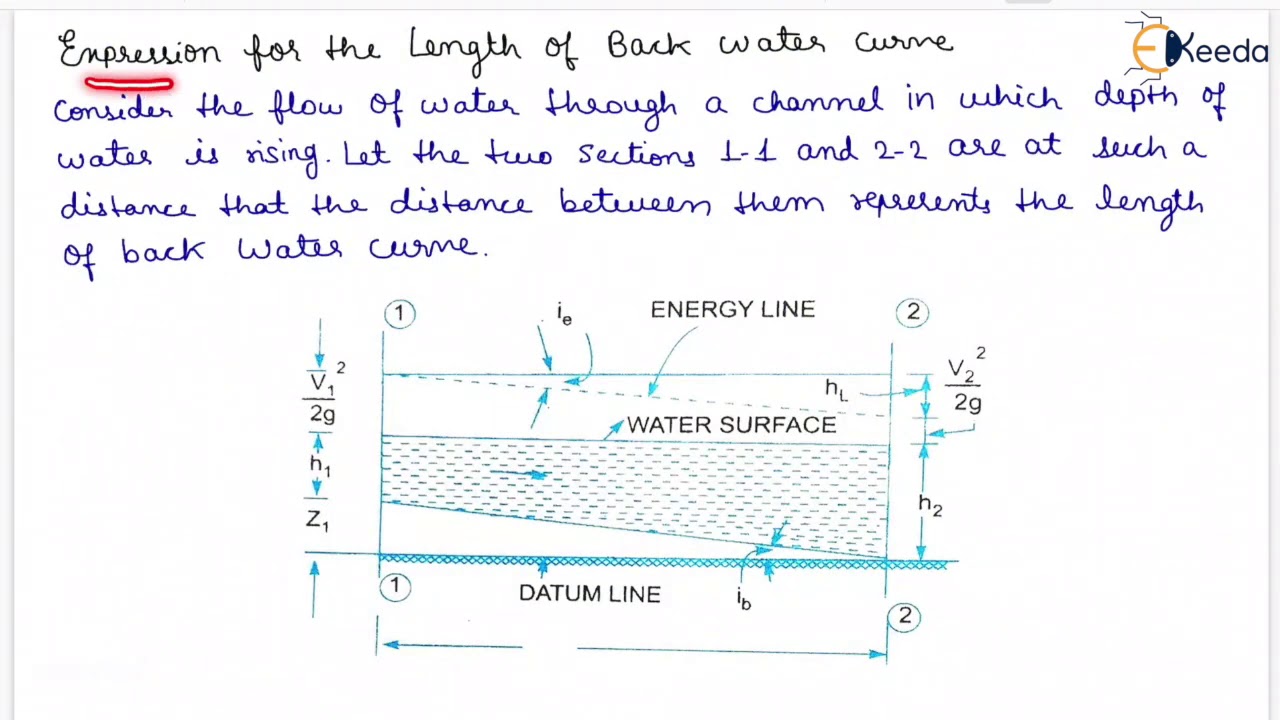 Expression for the Length of Back water curve
Keeda
Consider the flow of water through a channel in which depth of
water is rising. Let the two sections 1-1 and 2-2 are at such a
distance that the distance between them represents the length
of back water curve.
1 i_e ENERGY LINE 2
V_1^2/2g h_L V_2^2/2g
WATER SURFACE
h_1
Z_1 h_2
1 DATUM LINE i_b 2